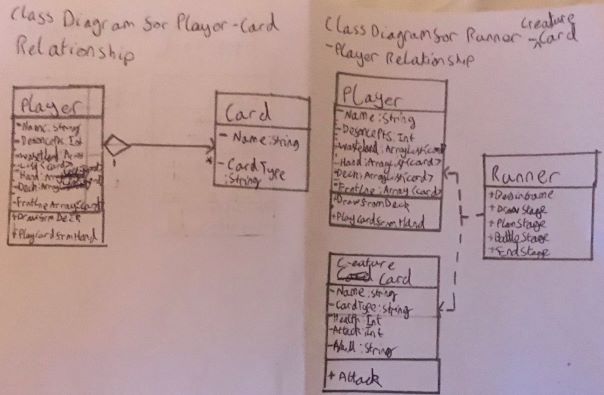 Class Diagram for Player-Card
Relationship
Player
-Name:String
: Int
-Wasteland: Array
List<card>
-Hand:
-Deck:
-Frontline Array<card>
+DrawfrmDeck
+PlayCardfrmHand
1
*
Card
-Name:String
-CardType
:String
Creature
Class Diagram for Runner - Card
-Player Relationship
Player
-Name:String
: Int
-Wasteland:ArrayList<card>
-Hand:ArrayList<card>
-Deck:ArrayList<card>
: Array<card>
+DrawfromDeck
+PlayCardfrmHand
Runner
+DrawStage
+PlanStage
+BattleStage
+EndStage
Creature
Card
-Name:String
-CardType:String
-Health:Int
-Attack:Int
: String
+Attack